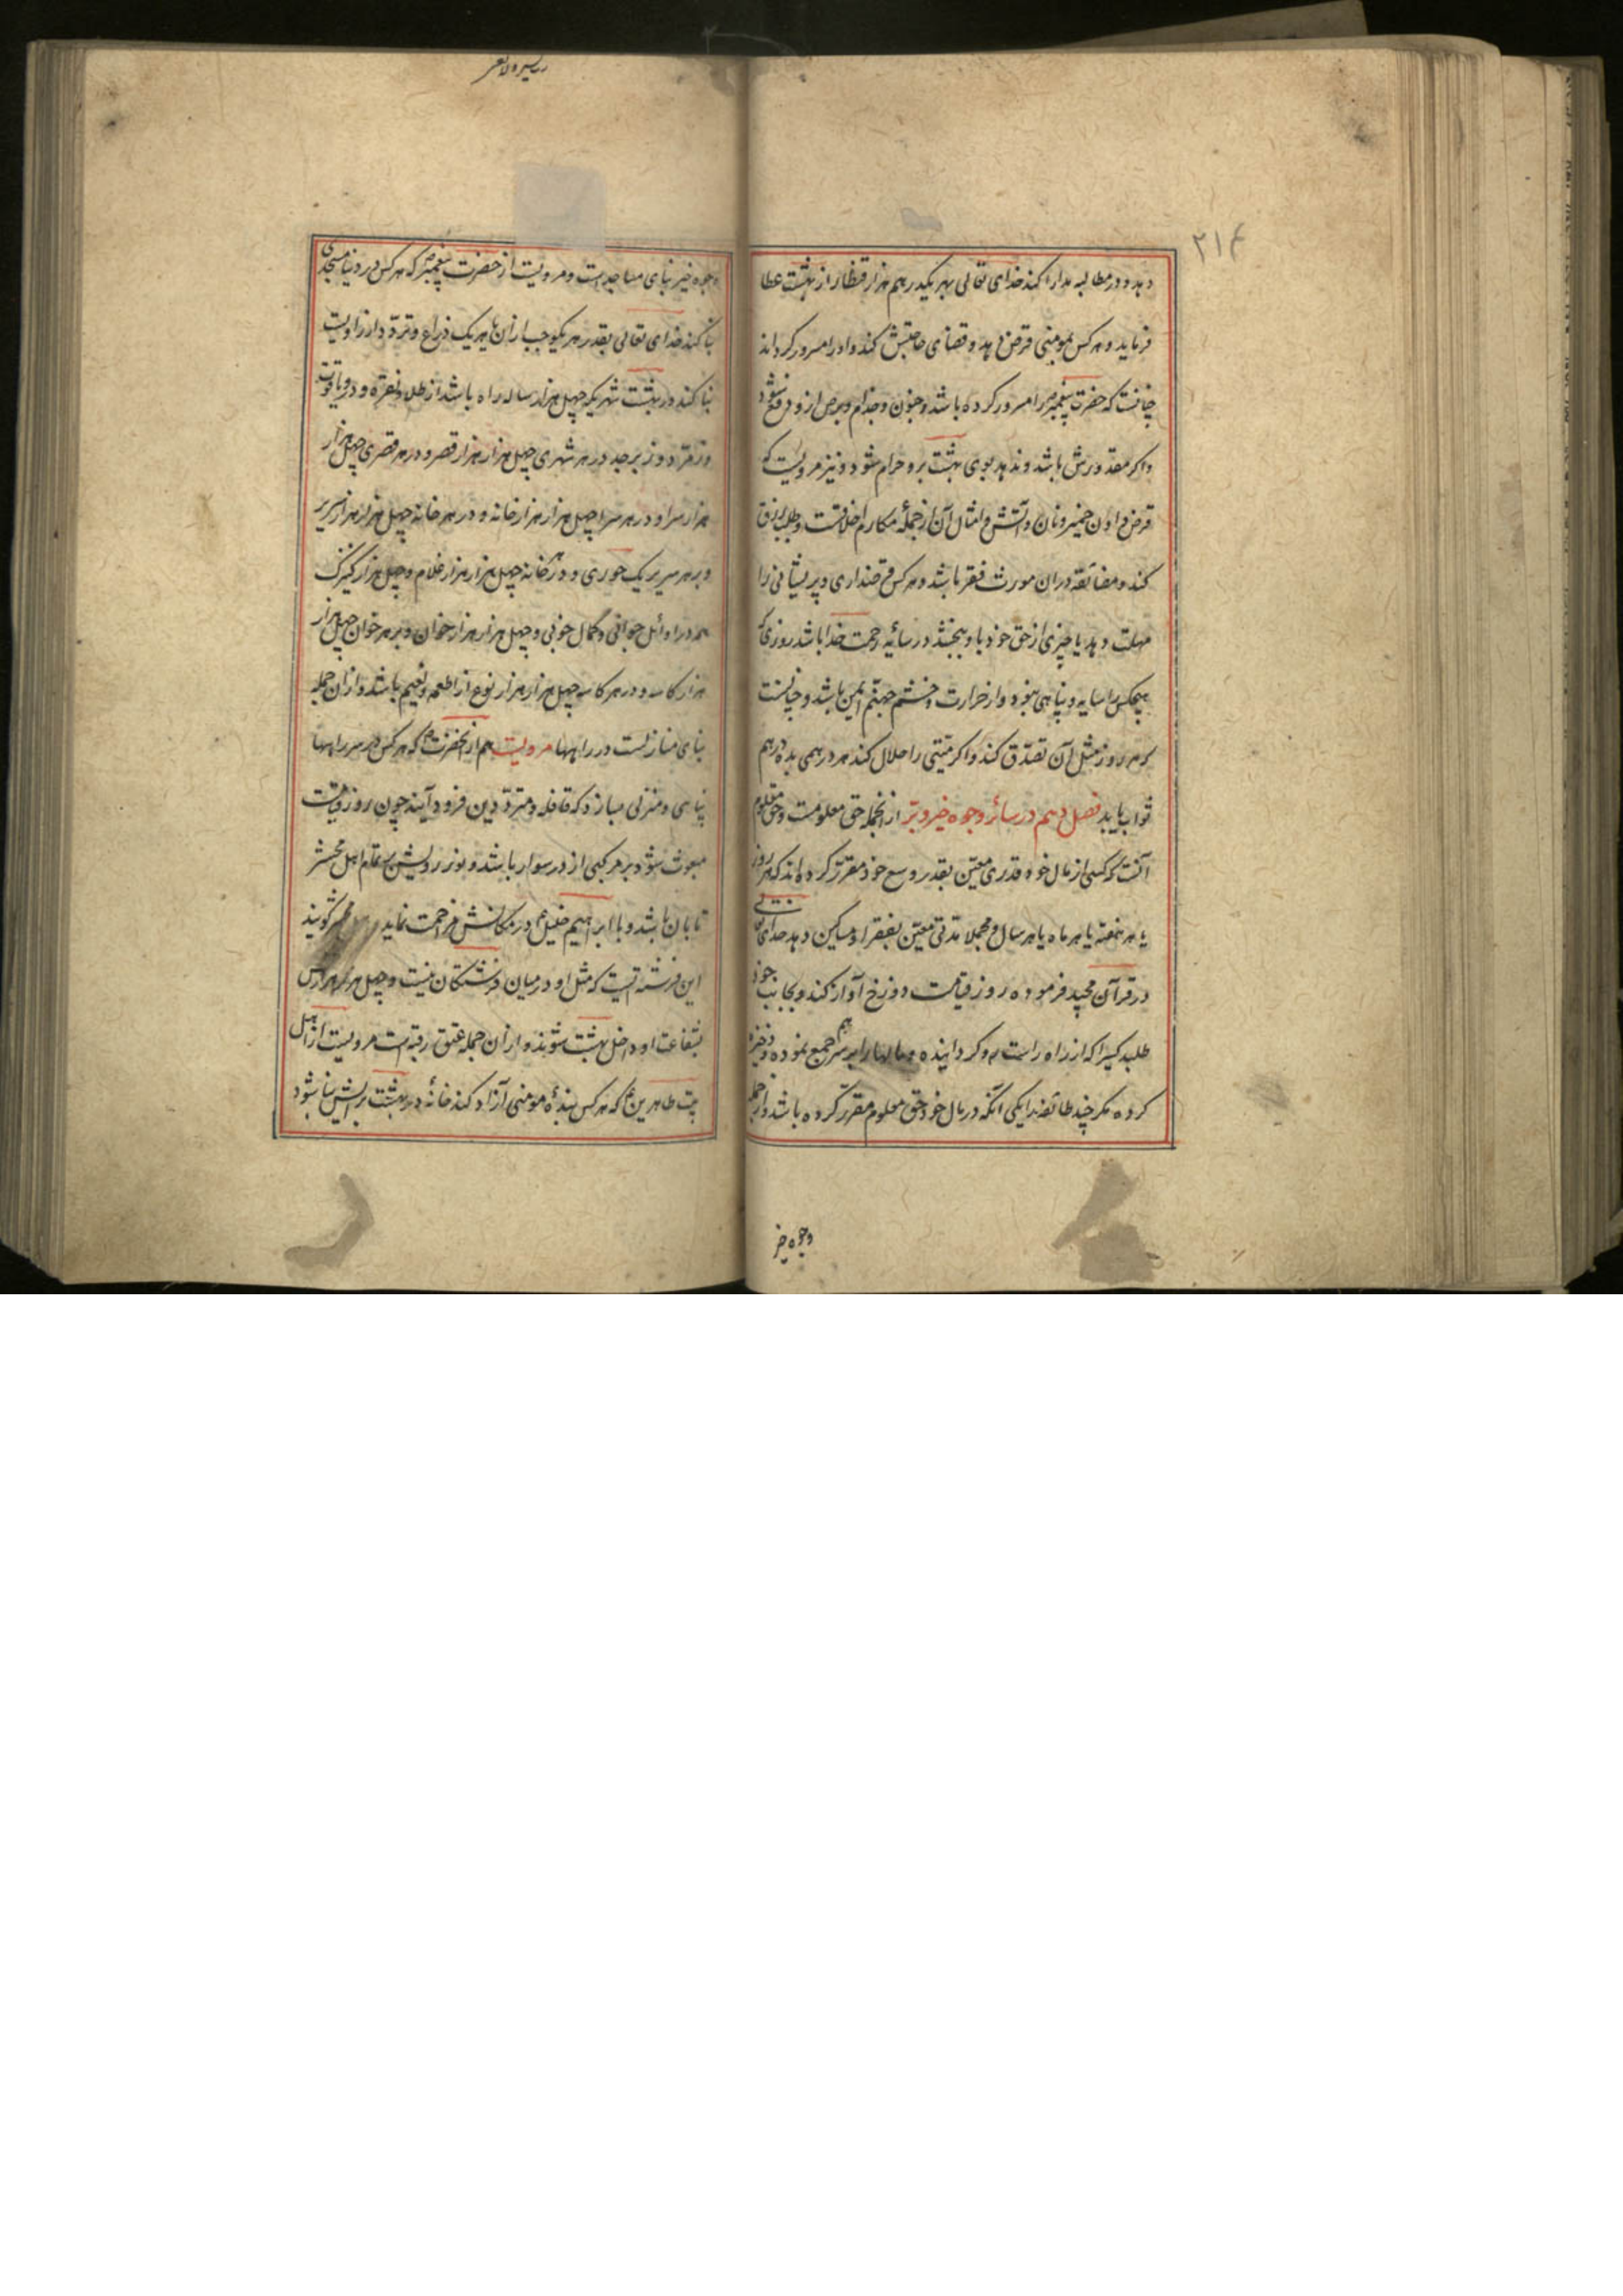 ۲۱۴
دهد و در مطالبه مدارا کند خدای تعالی بهر یکدرهم هزار قنطار از بهشت عطا
فرماید و هر کس بمومنی قرض دهد و قضای حاجتش کند و او را مسرور کرداند
چنانست که حضرت پیغمبر را مسرور کرده باشد و جنون و جذام و برص از و دفع شود
و اکر مقدورش باشد و ندهد بوی بهشت برو حرام شود و نیز مرویست که
قرض دادن خمیر و نان و آتش و امثال آن از جملهٔ مکارم اخلاقست و طلب رزق
کند و مضائقه دران مورث فقر باشد و هر کس قرضداری و پریشانی را
مهلت دهد یا چیزی از حق خود باو ببخشد در سائهٔ رحمت خدا باشد روزی که
هیچکس را سایه و پناهی نبود و از حرارت و خشم جهنم ایمن باشد و چنانست
که هر روز مثل آن تصدّق کند و اکر میّتی را حلال کند هر درهمی بده درهم
ثواب یابد فصل دهم در سائر وجوه خیر و برّ از انجمله حق معلومست و حق معلوم
آنست که کسی از مال خود قدری معیّن بقدر وسع خود مقرّر کرده اند که هر روز
یا هر هفته یا هر ماه یا هر سال و مجملا مدتی معیّن بفقرا و مساکین دهد خدای تعالی
در قرآن مجید فرموده روز قیامت دوزخ آواز کند و بجانب خود
طلبد کسیرا که از راه راست رو کردانیده و مالها را بر سر هم جمع نموده و ذخیره
کرده مکر چند طائفه را یکی آنکه در مال خود حق معلوم مقرّر کرده باشد و از جمله
وجوه خیر
وجوه خیر بنای مساجد است و مرویست از حضرت پیغمبر که هر کس در دنیا مسجدی
بنا کند خدای تعالی بقدر هر یکوجب از ان یا هر یک ذراع و تردّد از راویت
بنا کند در بهشت شهریکه چهل هزار ساله راه باشد از طلا و نقره و در و یاقوت
و زمرّد و زبرجد در هر شهری چهل هزار هزار قصر و در هر قصری چهل هزار
هزار سرا و در هر سرا چهل هزار هزار خانه و در هر خانه چهل هزار هزار سریر
و بر هر سریر یک حوری و در هر خانه چهل هزار هزار غلام و چهل هزار کنیزک
همه در اوائل جوانی و کمال خوبی و چهل هزار هزار خوان و بر هر خوان چهل هزار
هزار کاسه و در هر کاسه چهل هزار هزار نوع از اطعمه و نعیم باشد و از ان جمله
بنای منازلست در راهها مرویست هم از انحضرت که هر کس در سر راهها
پناهی و منزلی سازد که قافله و متردّدین فرود آیند چون روز قیامت
مبعوث شود بر مرکبی از در سوار باشد و نور رویش بر تمام اهل محشر
تابان باشد و با ابراهیم خلیل در مکانش مزاحمت نماید کویند
این فرشته ایست که مثل او در میان فرشتکان نیست و چهل هزار هزار کس
بشفاعت او داخل بهشت شوند و از ان جمله عتق رقبه است مرویست از اهل
بیت طاهرین که هر کس بندهٔ مومنی آزاد کند خانهٔ در بهشت برایش بنا شود